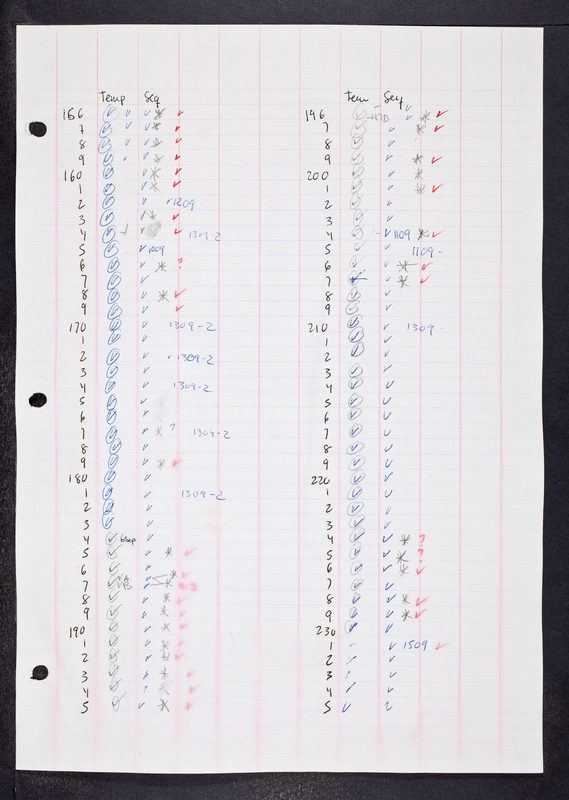 Temp Seq
156
7
8
9
160
1
2 1209
3
4 1309-2
5 1009
6 ?
7
8
9
170 1309-2
1
2 1309-2
3
4 1309-2
5
6
7 ? 1309-2
8
9
180
1 1309-2
2
3
4
5
6
7
8
9
190
1
2
3
4
5
Tem Seq
196
7
8
9
200
1
2
3
4 1109
5 1109-
6
7
8
9
210 1309
1
2
3
4
5
6
7
8
9
220
1
2
3
4 ?
5 ?
6
7
8
9
230
1 1509
2
3
4
5